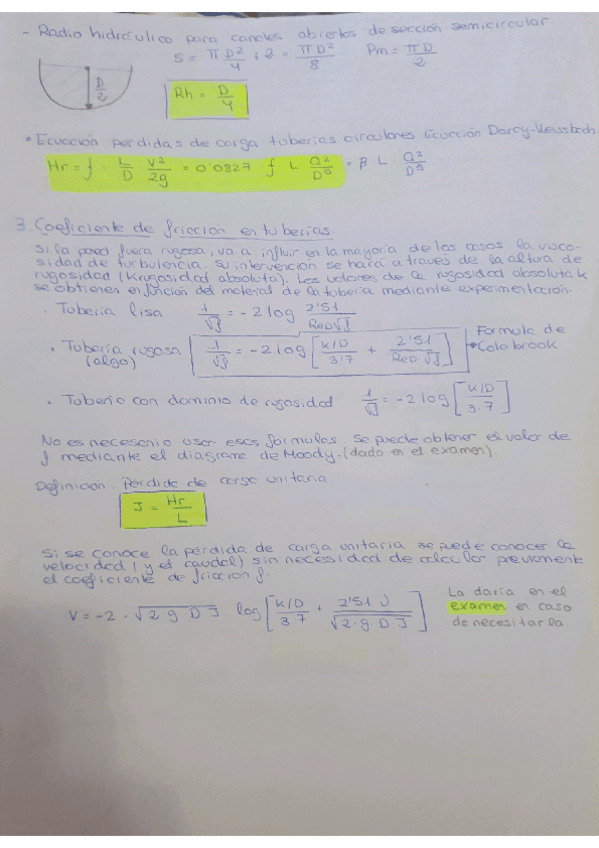 - Radio hidráulico para canales abiertos de sección semicircular.
S = π D²/4 : 2 = πD²/8    Pm = πD/2
D/2
Rh = D/4
• Ecuación perdidas de carga tuberias circulares Ecuación Darcy-Weissbach
Hr = f · L/D · V²/2g = 0'0827 · f L Q²/D⁵ = β L · Q²/D⁵
3. Coeficiente de friccion en tuberias.
Si la pared fuera rugosa, va a influir en la mayoria de los casos la visco-
sidad de turbulencia. Su intervencion se hará a través de la altura de
rugosidad (K rugosidad absoluta). Los valores de la rugosidad absoluta k
se obtienen en función del material de la tuberia mediante experimentación.
· Tuberia lisa    1/√f = -2 log 2'51/(ReD√f)
• Tuberia rugosa (algo)    1/√f = -2 log [(K/D)/3'7 + 2'51/(ReD √f)]    Formula de
Colebrook
• Tuberia con dominio de rugosidad    1/√f = -2 log [(K/D)/3.7]
No es necesario usar esas formulas. Se puede obtener el valor de
f mediante el diagrama de Moody. (dado en el examen).
Definición. Perdida de carga unitaria.
J = Hr/L
Si se conoce la perdida de carga unitaria se puede conocer la
velocidad (y el caudal) sin necesidad de calcular previamente
el coeficiente de friccion f.
V = -2 · √(2 · g · D · J) log [(K/D)/3'7 + 2'51 υ/√(2·g·D·J)]    La daría en el
examen en caso
de necesitarla